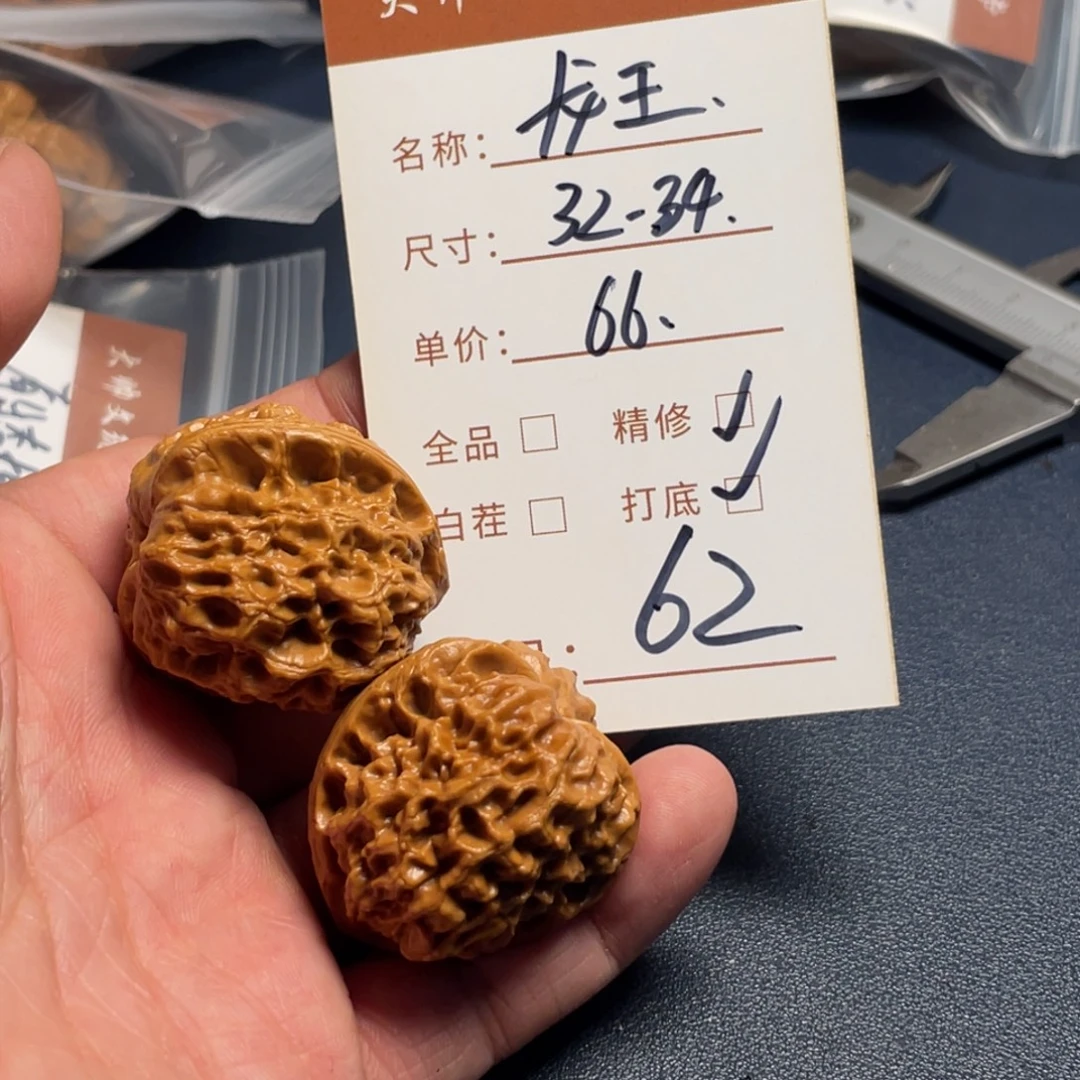 名称：龙王.
尺寸：32-34.
单价：66.
全品 □ 精修 ☑
白茬 □ 打底 ☑
62